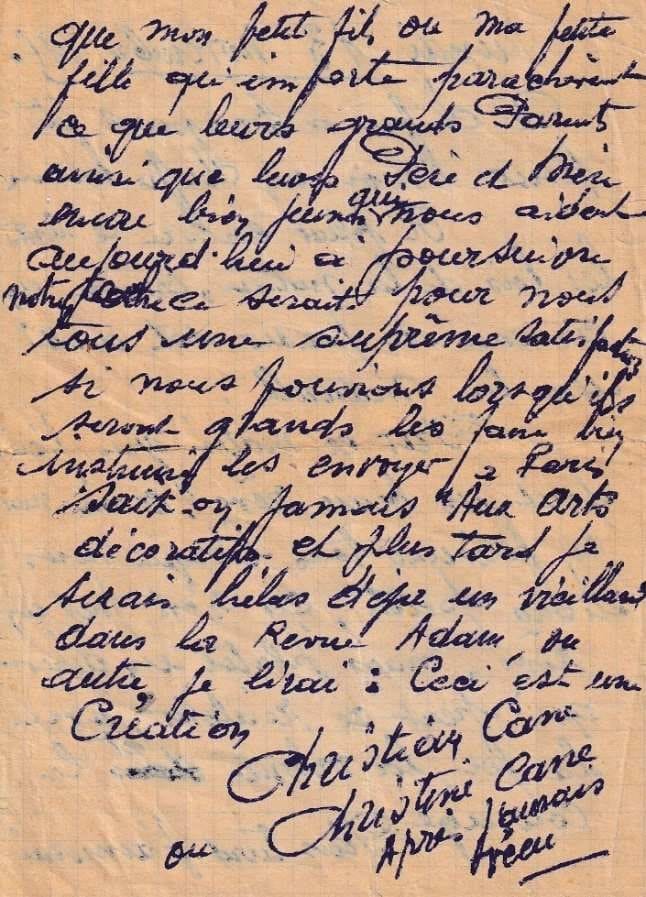 que mon petit fils ou ma petite
fille qu'importe parachèvent
ce que leurs grands Parents
ainsi que leurs Père et Mère
encore bien jeunes qui nous aident
aujourd'hui à poursuivre
notre ce serait pour nous
tous une suprême satisfaction
si nous pouvions lorsqu'ils
seront grands les faire bien
instruire les envoyer à Paris
sait-on jamais "Aux Arts
décoratifs et plus tard je
serais hélas déjà un vieillard
dans la Revue Adam, ou
autre, je lirai : Ceci est une
Création
Christian Cane
ou Christine Cane
Après j'aurais
vécu